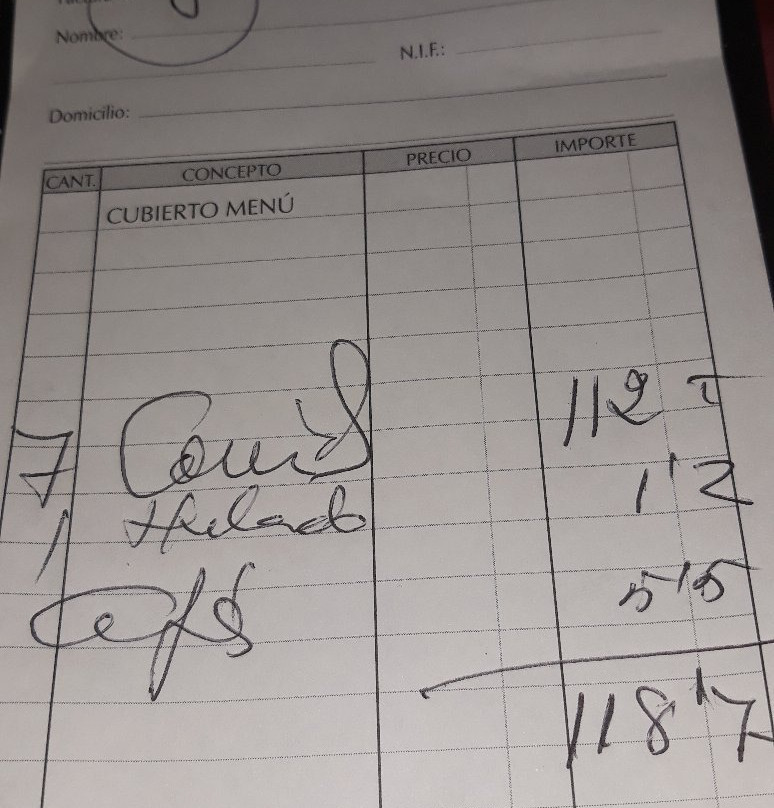 Nombre:
N.I.F.:
Domicilio:
CANT. CONCEPTO PRECIO IMPORTE
CUBIERTO MENÚ
7 Comid 112
1 Helado 1'2
Cafés 5'5
118'7